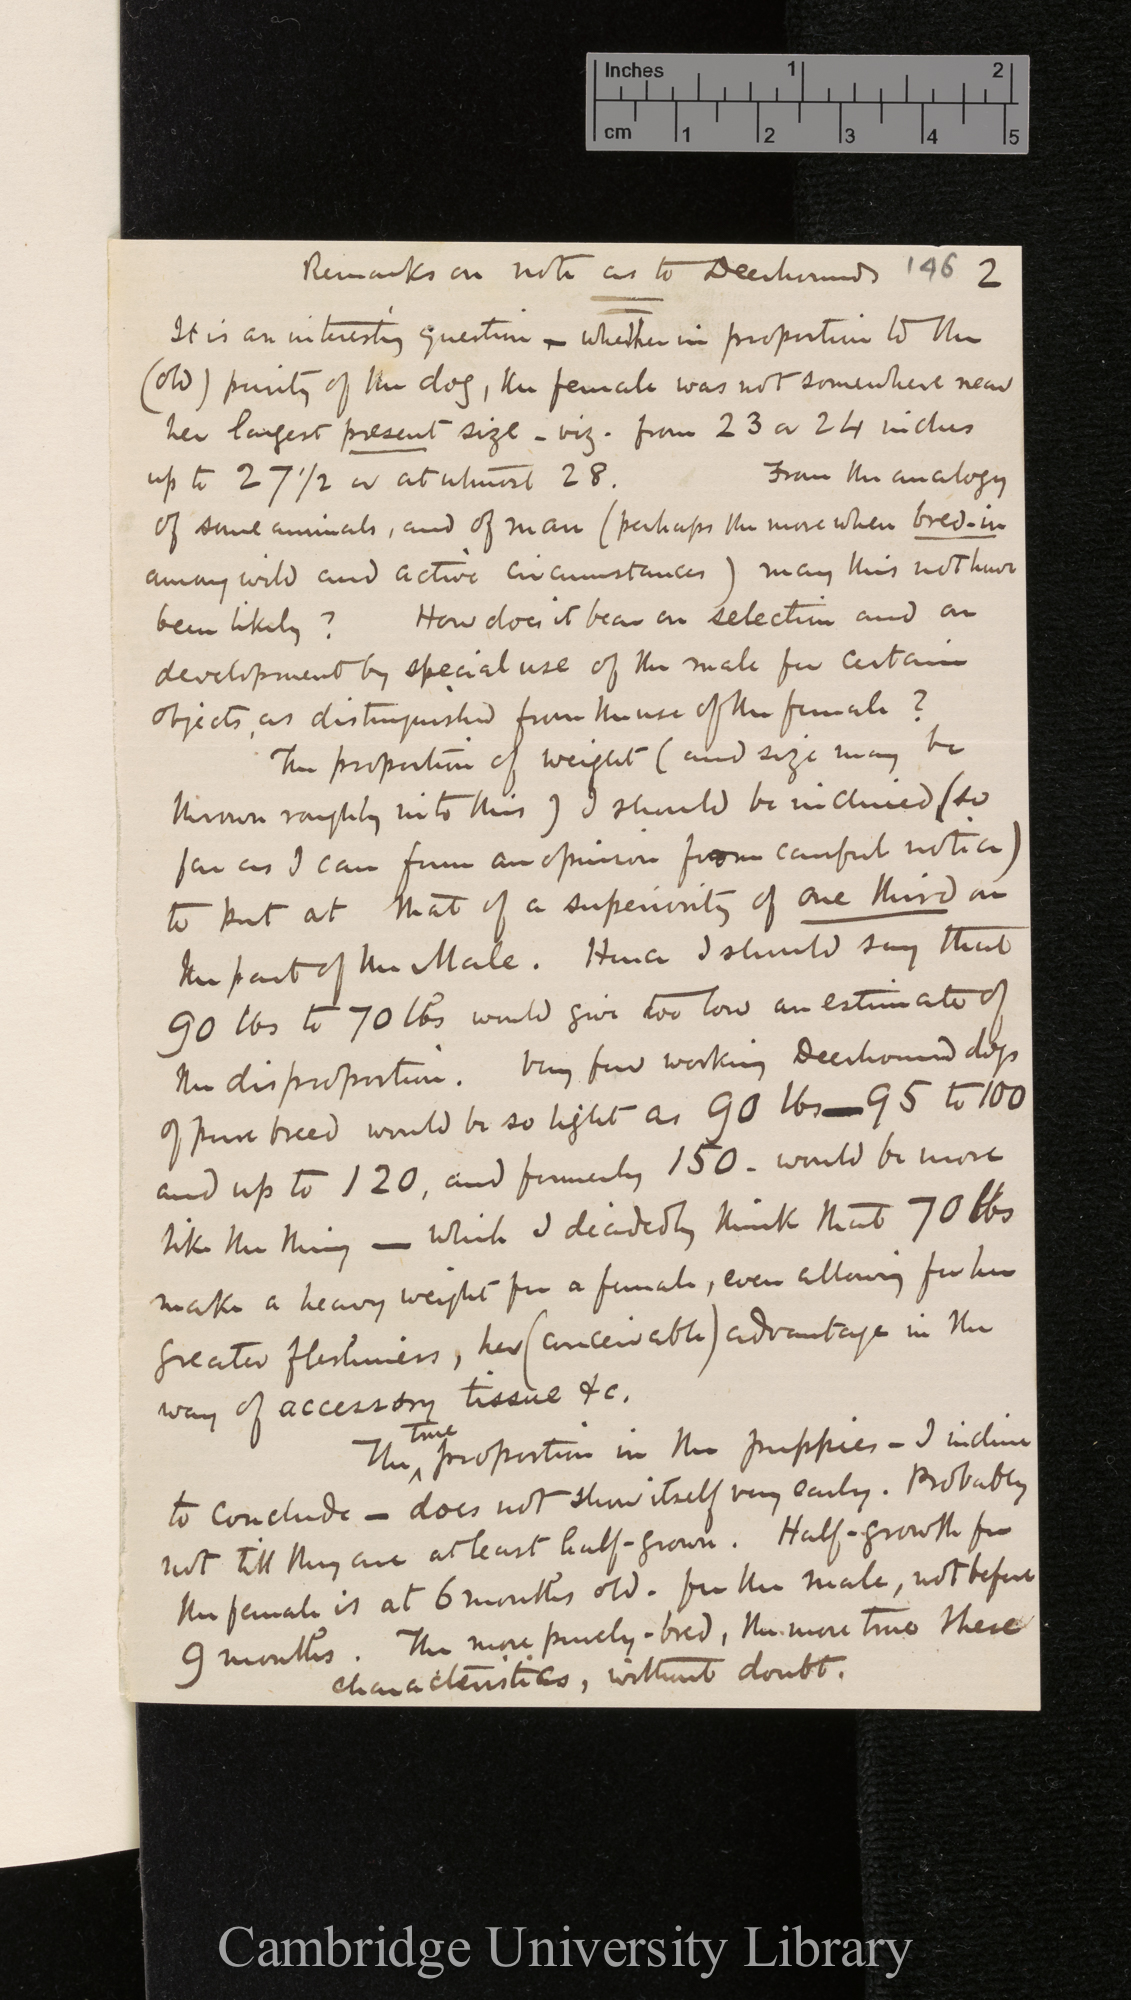 Inches 1 2
cm 1 2 3 4 5
Remarks on note as to Deerhounds 146 2
It is an interesting question - whether in proportion to the
(old) purity of the dog, the female was not somewhere near
her largest present size - viz. from 23 or 24 inches
up to 27 1/2 or at utmost 28. From the analogy
of some animals, and of man (perhaps the more when bred-in
among wild and active circumstances) may this not have
been likely? How does it bear on selection and on
development by special use of the male for certain
objects, as distinguished from the use of the female?
The proportion of weight (and size may be
thrown roughly into this) I should be inclined (so
far as I can form an opinion from careful notice)
to put at that of a superiority of one third on
the part of the Male. Hence I should say that
90 lbs to 70 lbs would give too low an estimate of
the disproportion. Very few working Deerhound dogs
of pure breed would be so light as 90 lbs — 95 to 100
and up to 120, and formerly 150 - would be more
like the thing — while I decidedly think that 70 lbs
make a heavy weight for a female, even allowing for her
greater fleshiness, her (conceivable) advantage in the
way of accessory tissue &c.
The true proportion in the puppies - I incline
to conclude - does not show itself very early. Probably
not till they are at least half-grown. Half-growth for
the female is at 6 months old. for the male, not before
9 months. The more purely-bred, the more true these
characteristics, without doubt.
Cambridge University Library